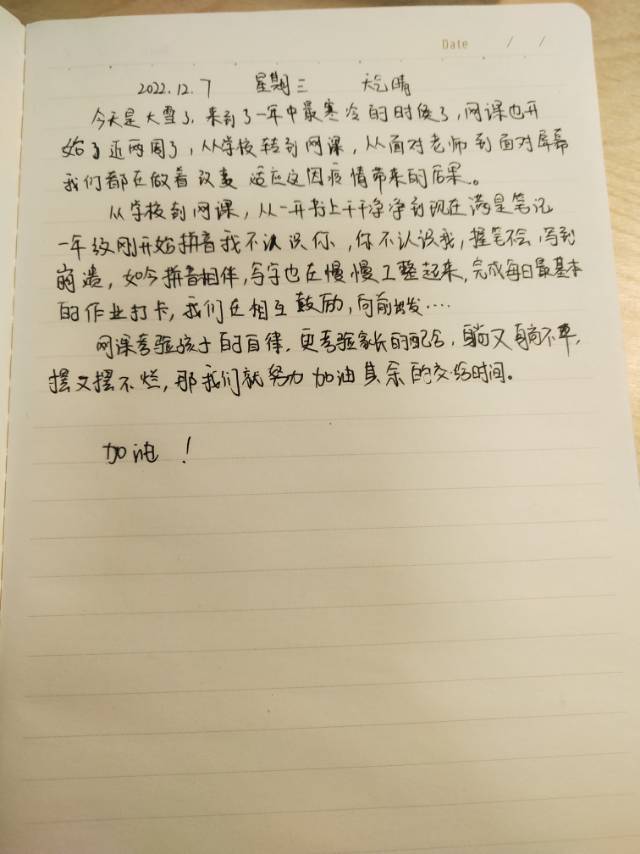 Date / /
2022.12.7 星期三 天气晴
今天是大雪了,来到了一年中最寒冷的时候了,网课也开
始了近两周了,从学校转到网课,从面对老师到面对屏幕
我们都在做着改变 适应这因疫情带来的后果。
从学校到网课,从一开书上干干净净到现在满是笔记
一年级刚开始拼音我不认识你,你不认识我,握笔不会,写到
崩溃,如今拼音相伴,写字也在慢慢工整起来,完成每日最基本
的作业打卡,我们在相互鼓励,向前出发....
网课考验孩子的自律.更考验家长的配合,躺又躺不平,
摆又摆不烂,那我们就努力加油其余的交给时间。
加油!